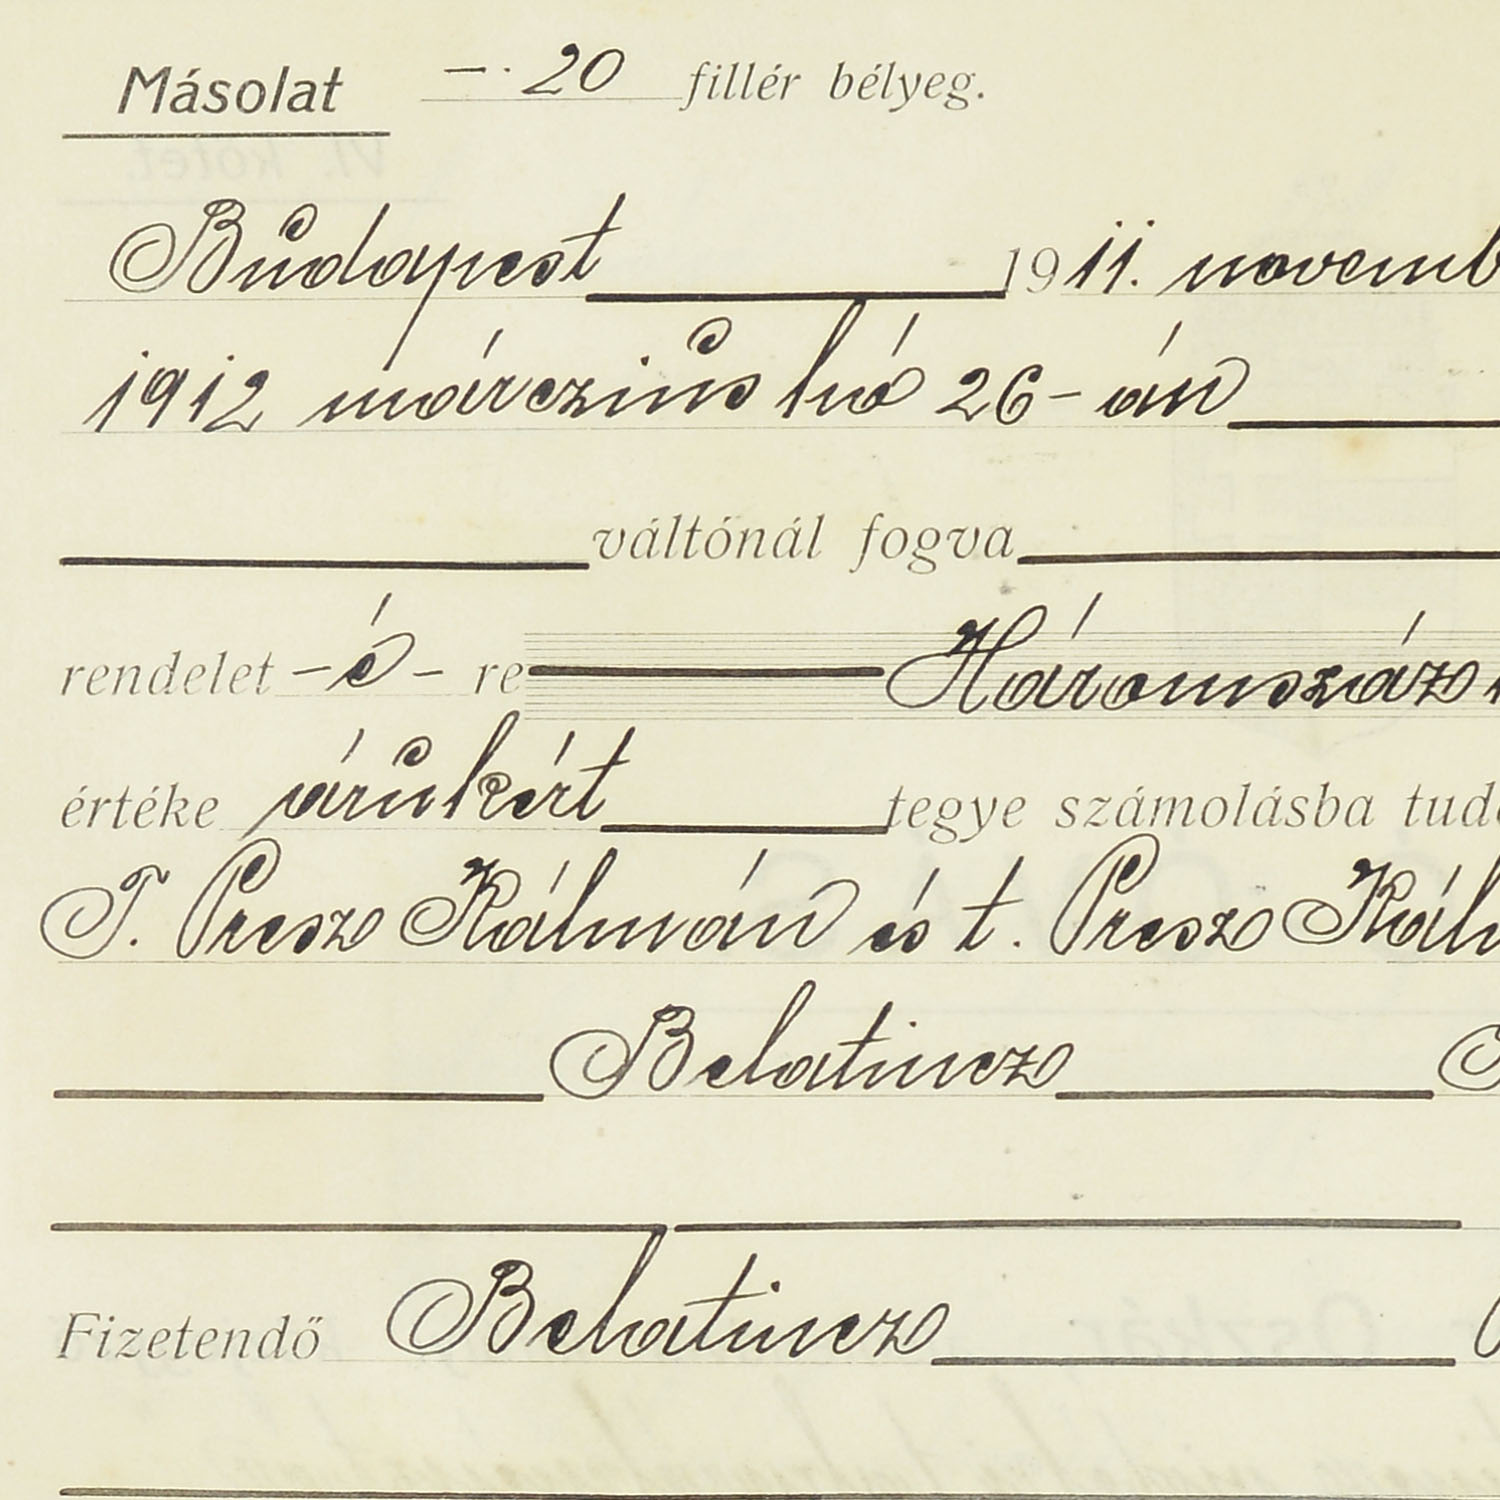 Másolat —·20 fillér bélyeg.
Budapest 1911. novemb
1912 márczius hó 26-án
váltónál fogva
rendelet -é- re Háromszáz
értéke árúkért tegye számolásba tud
T. Presz Kálmán és t. Presz Kál
Belatincz
Fizetendő Belatincz